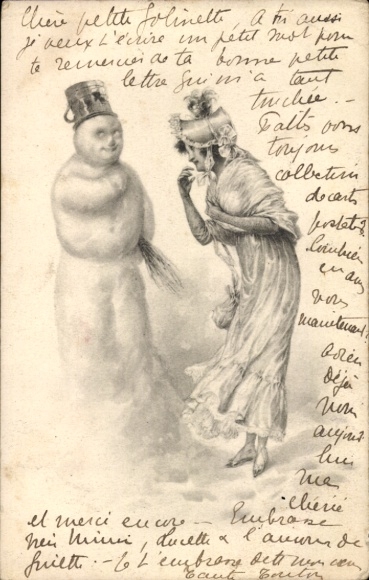 Chère petite Jolinette, A toi aussi
je veux t'écrire un petit mot pour
te remercier de ta bonne petite
lettre qui m'a tant
touchée. -
Faites vous
toujours
collection
de cartes
postales?
Combien
en avez
vous
maintenant?
adieu
déjà
pour
aujour
hui
ma
chérie
et merci encore - Embrasse
Mimi, Lucette &
- Je t'embrasse de mon
Tante